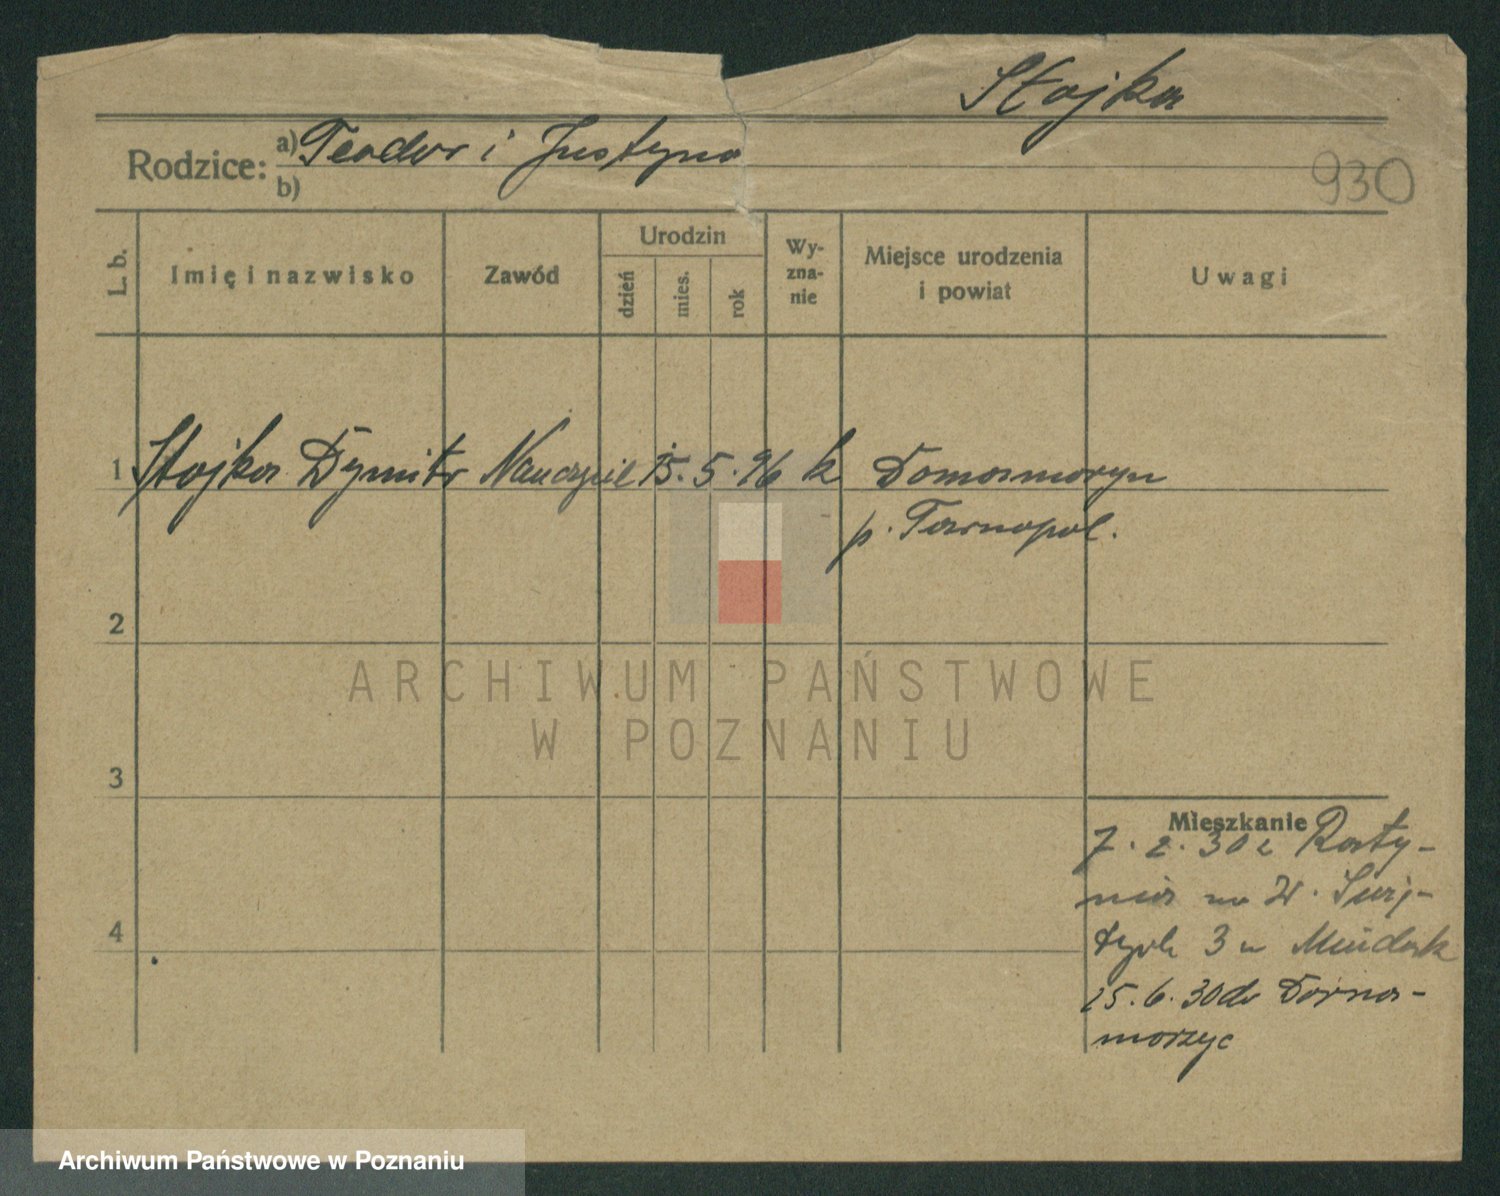 Stojka
Rodzice: a) Teodor i Justyna
b)
930
L. b.
Imię i nazwisko
Zawód
Urodzin
dzień
mies.
rok
Wy-
zna-
nie
Miejsce urodzenia
i powiat
Uwagi
1 Stojka Dymitr Nauczyciel 15. 5. 96 k Domamoryn
p. Tarnopol.
2
3
4
Mieszkanie
7. 2. 30 z
na
3 u
15. 6. 30 do
ARCHIWUM PAŃSTWOWE
W POZNANIU
Archiwum Państwowe w Poznaniu